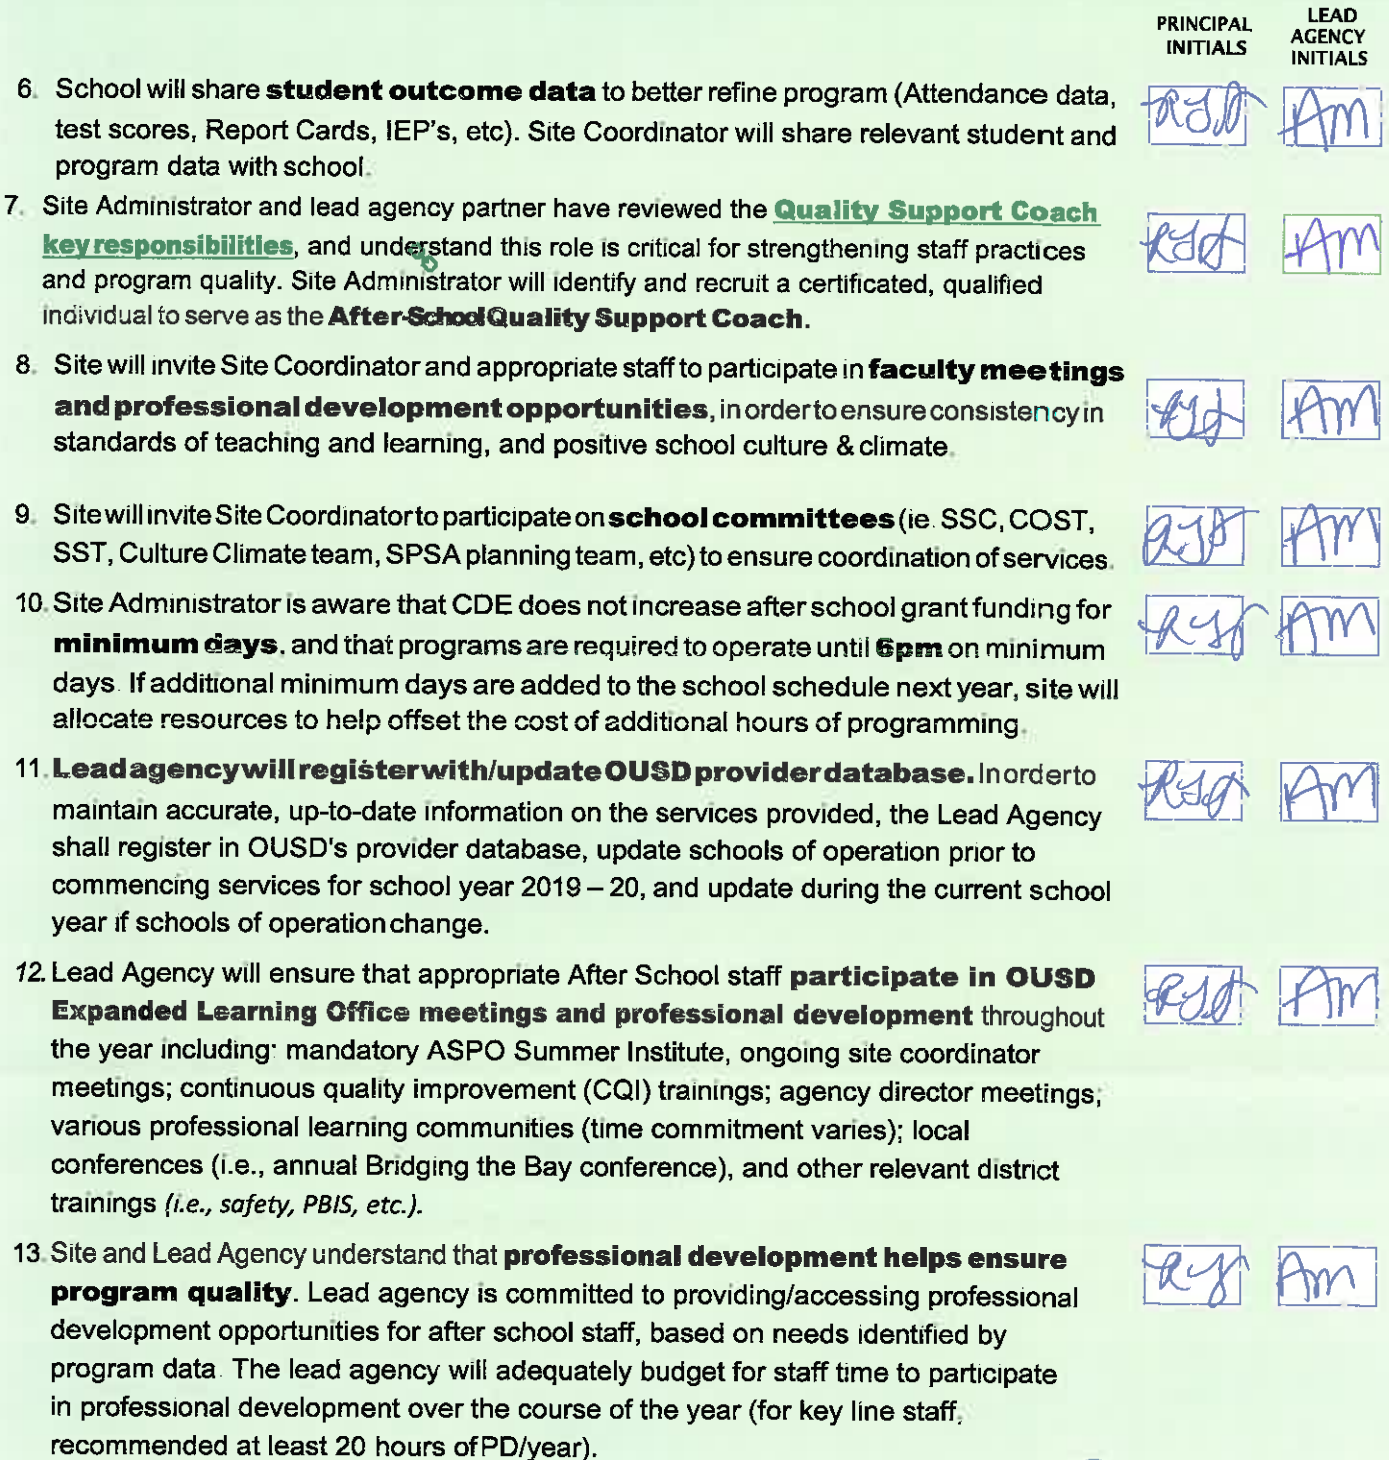 PRINCIPAL INITIALS
LEAD AGENCY INITIALS
6. School will share student outcome data to better refine program (Attendance data,
test scores, Report Cards, IEP's, etc). Site Coordinator will share relevant student and
program data with school.
AM
7. Site Administrator and lead agency partner have reviewed the Quality Support Coach
key responsibilities, and understand this role is critical for strengthening staff practices
and program quality. Site Administrator will identify and recruit a certificated, qualified
individual to serve as the After-School Quality Support Coach.
AM
8. Site will invite Site Coordinator and appropriate staff to participate in faculty meetings
and professional development opportunities, in order to ensure consistency in
standards of teaching and learning, and positive school culture & climate.
AM
9. Site will invite Site Coordinator to participate on school committees (ie. SSC, COST,
SST, Culture Climate team, SPSA planning team, etc) to ensure coordination of services.
AM
10. Site Administrator is aware that CDE does not increase after school grant funding for
minimum days, and that programs are required to operate until 6pm on minimum
days. If additional minimum days are added to the school schedule next year, site will
allocate resources to help offset the cost of additional hours of programming.
AM
11. Lead agency will register with/update OUSD provider database. In order to
maintain accurate, up-to-date information on the services provided, the Lead Agency
shall register in OUSD's provider database, update schools of operation prior to
commencing services for school year 2019 – 20, and update during the current school
year if schools of operation change.
AM
12. Lead Agency will ensure that appropriate After School staff participate in OUSD
Expanded Learning Office meetings and professional development throughout
the year including: mandatory ASPO Summer Institute, ongoing site coordinator
meetings; continuous quality improvement (CQI) trainings; agency director meetings;
various professional learning communities (time commitment varies); local
conferences (i.e., annual Bridging the Bay conference), and other relevant district
trainings (i.e., safety, PBIS, etc.).
AM
13. Site and Lead Agency understand that professional development helps ensure
program quality. Lead agency is committed to providing/accessing professional
development opportunities for after school staff, based on needs identified by
program data. The lead agency will adequately budget for staff time to participate
in professional development over the course of the year (for key line staff,
recommended at least 20 hours of PD/year).
Am